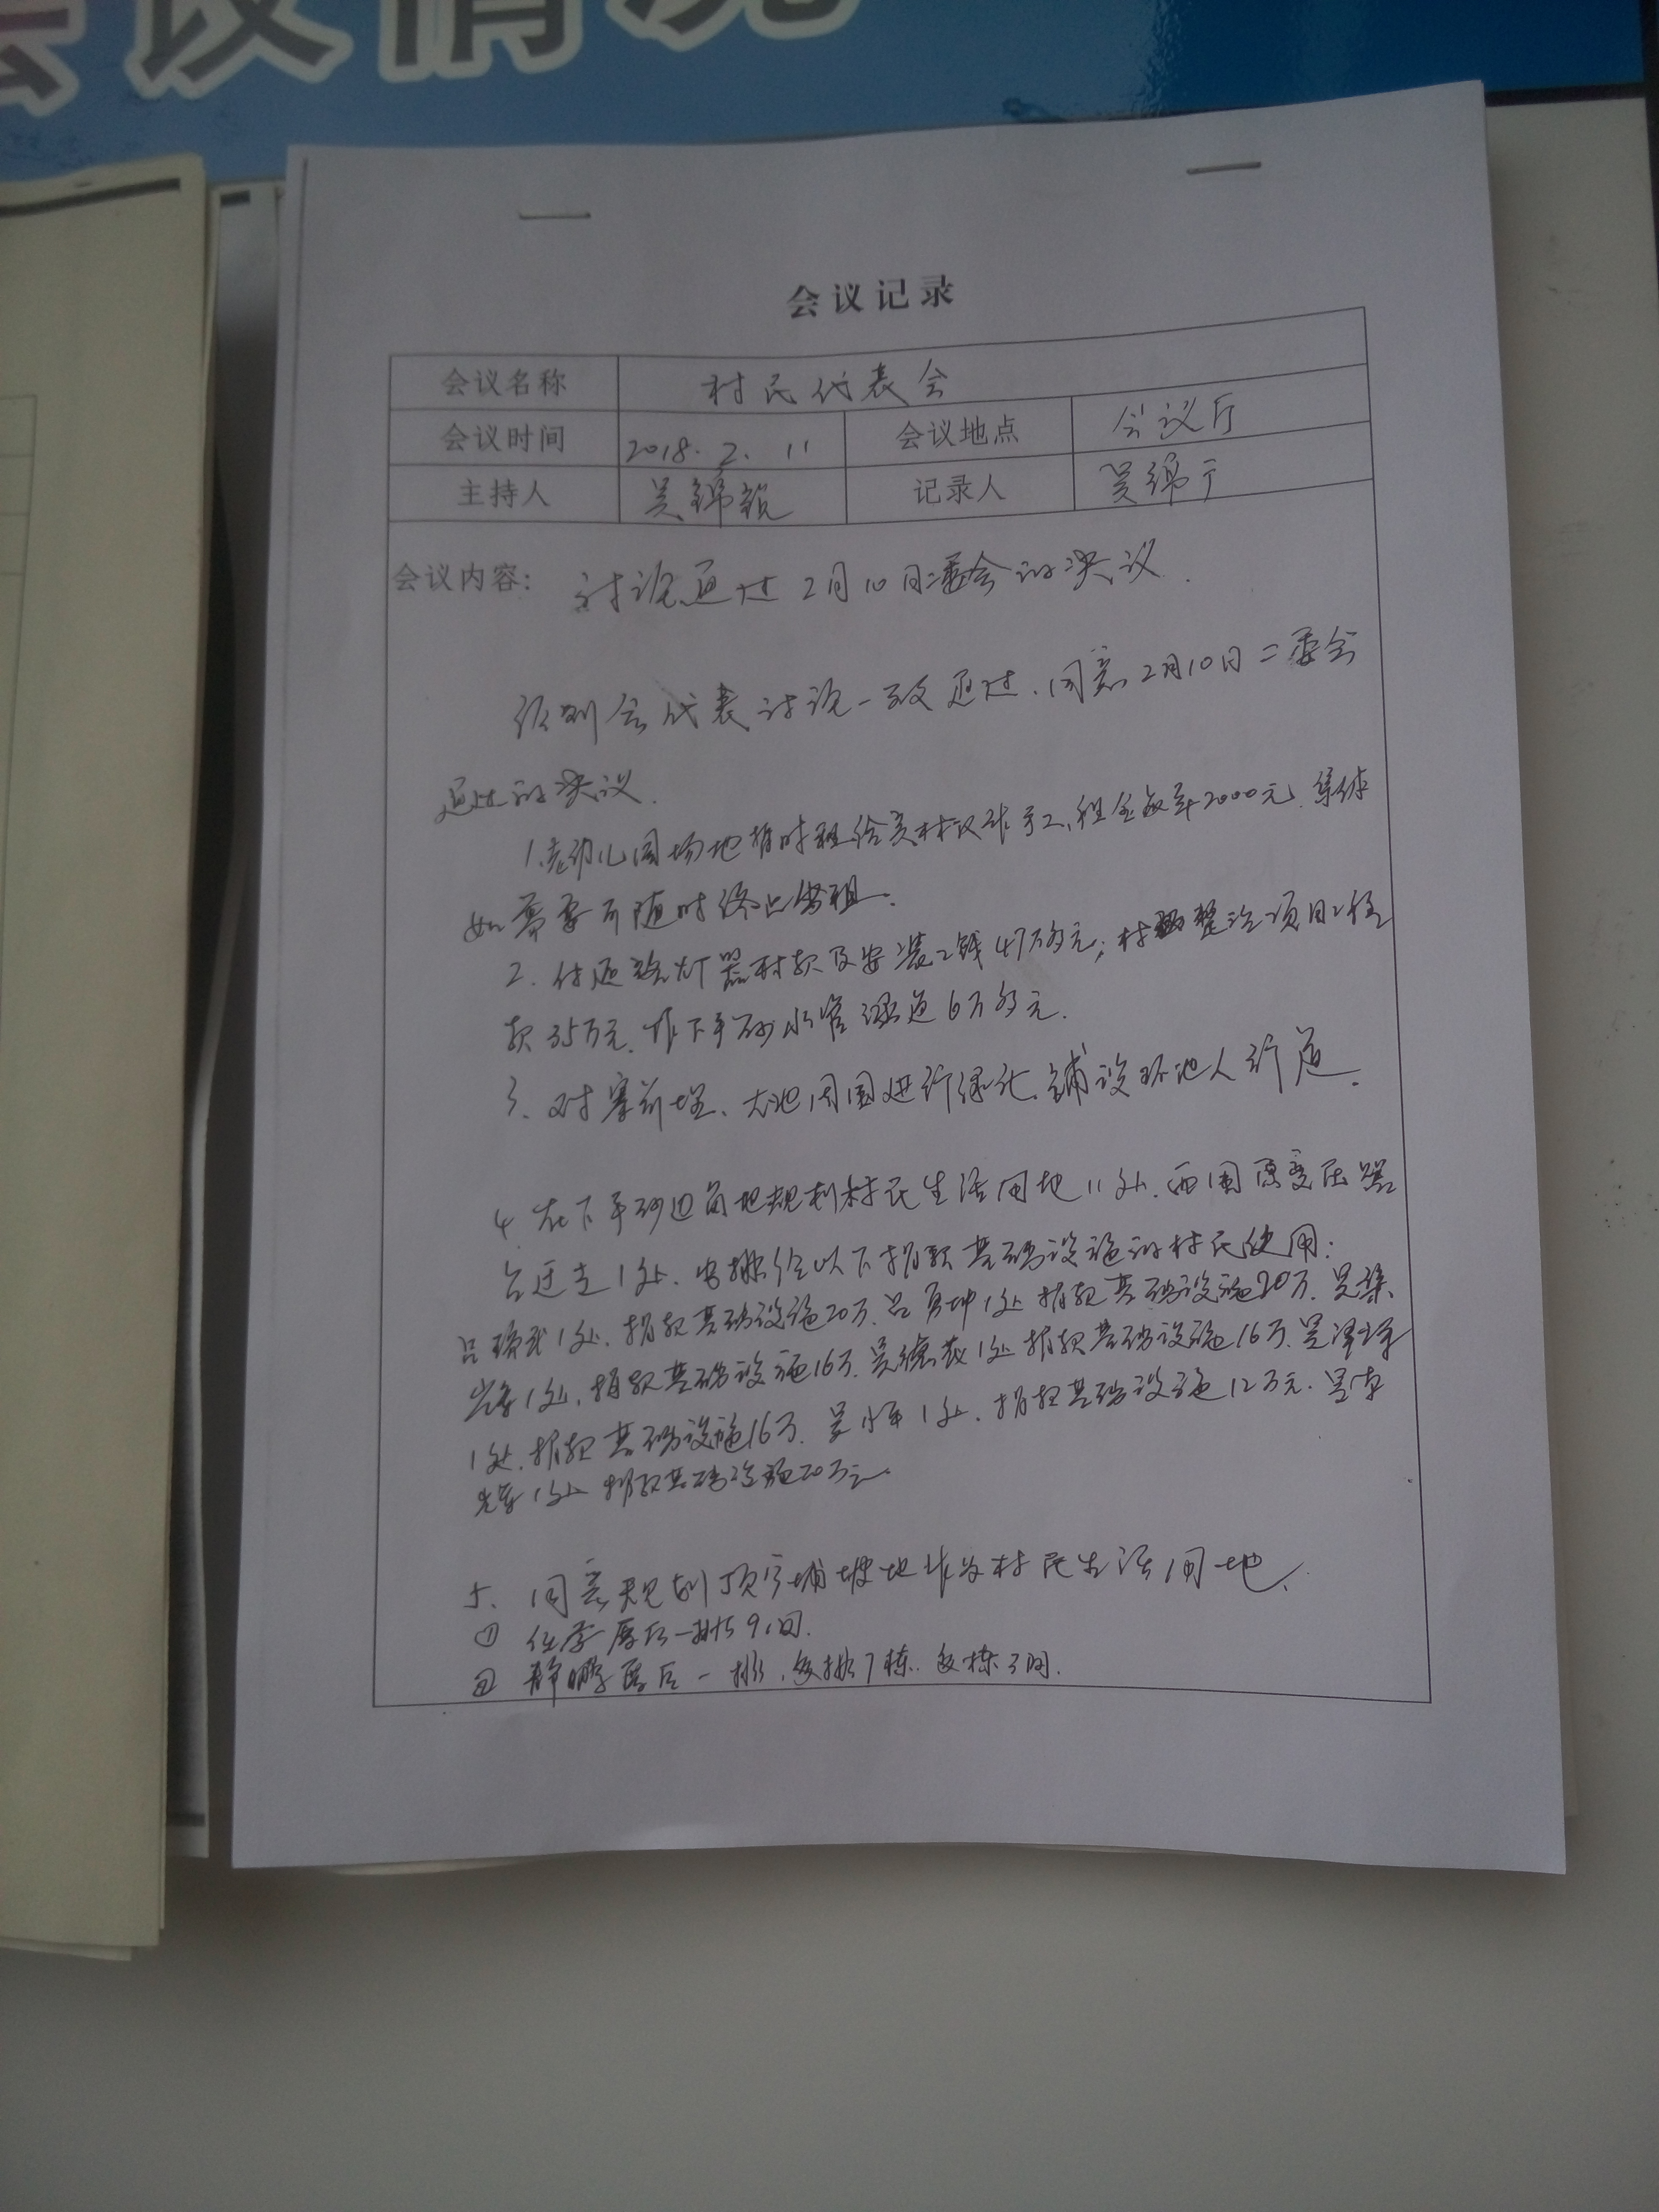 会议情况
会议记录
会议名称 村民代表会
会议时间 2018.2.11 会议地点 会议厅
主持人 吴锦 记录人 吴绵
会议内容: 讨论通过2月10日二委会的决议.
经到会代表讨论一致通过.同意2月10日二委会
通过的决议.
1.老幼儿园场地暂时租给吴林汉作手工,租金每年2000元.集体
如需要可随时终止出租.
2.付还路灯器材款及安装工钱47万多元;村 整治项目工程
款35万元.作下平砂水管 道6万多元.
3.对寨前埕、大池周围进行绿化.铺设环池人行道.
4.在下平砂边角地规划村民生活用地11处.西围原变压器
台迁走1处.安排给以下捐款基础设施的村民使用:
吕 1处.捐款基础设施20万.吕 坤1处捐款基础设施20万.吴
1处,捐款基础设施16万.吴 1处捐款基础设施16万.吴
1处.捐款基础设施16万.吴小 1处.捐款基础设施12万元.吴
1处捐款基础设施20万元.
5.同意规划顶 埔坡地作为村民生活用地.
① 厝后一排9间.
② 静鹏厝后一排,每排7栋.每栋3间.